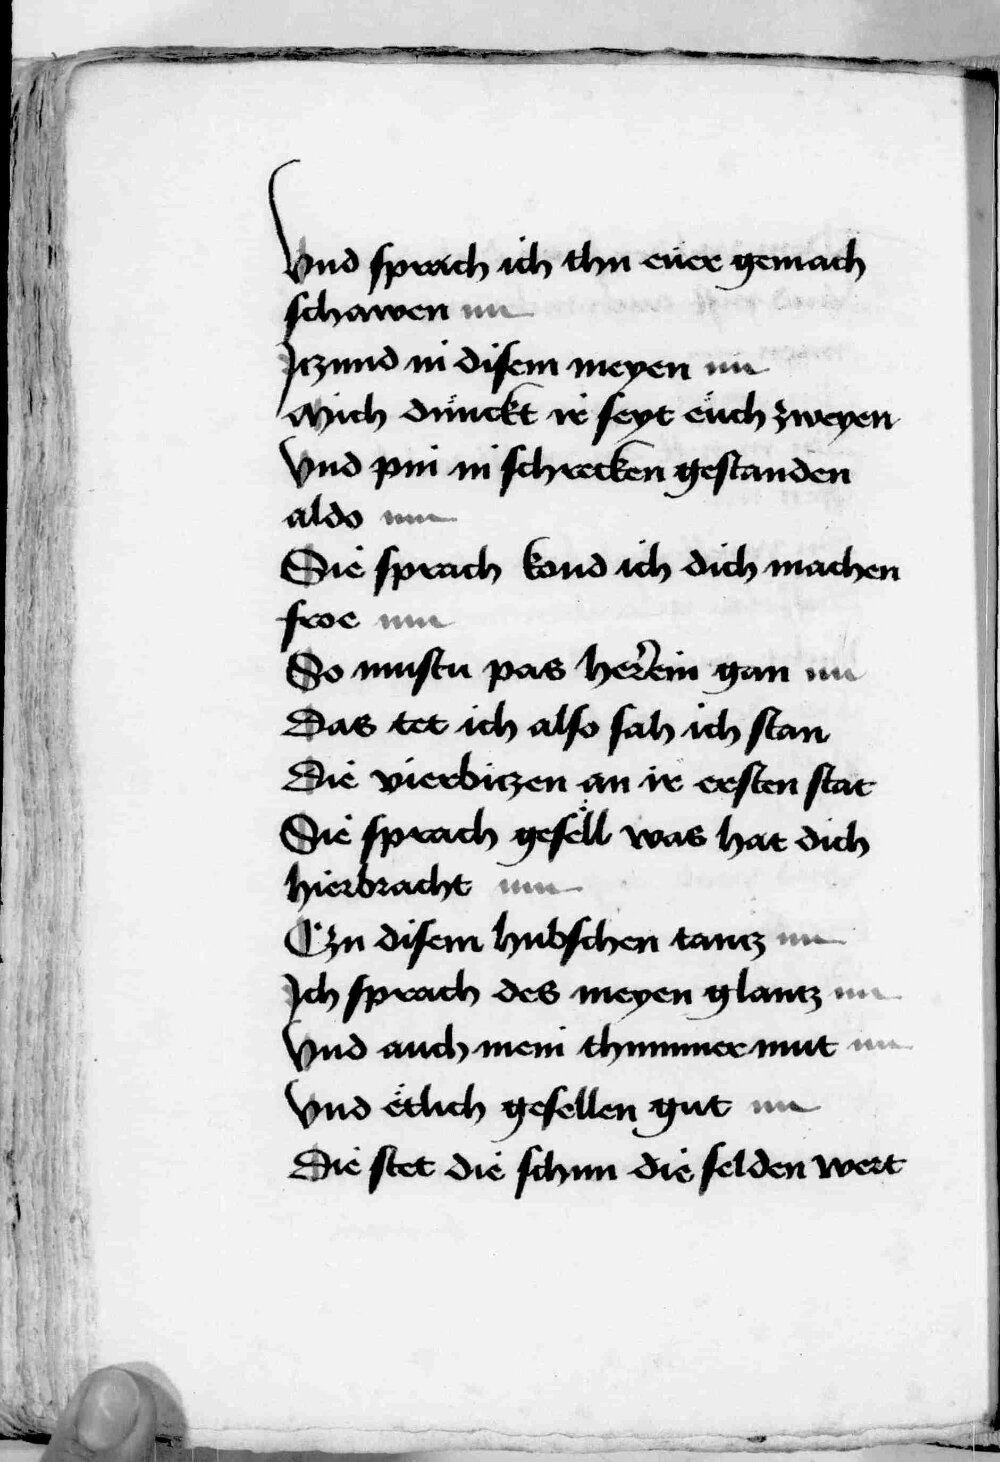 Vnd sprach ich thu eüer gemach
schawen
Jtzund in disem meyen
Mich dünckt ir seyt eüch zweyen
Vnd pin in schrecken gestanden
aldo
Sie sprach kond ich dich machen
froe
So mustu pas herein gan
Das tet ich also sah ich stan
Die vierbitzen an ir ersten stat
Sie sprach gesell was hat dich
hierbracht
Czu disem hubschen tantz
Jch sprach des meyen glantz
Vnd auch mein thummer mut
Vnd etlich gesellen gut
Die stet die schun die selden wert